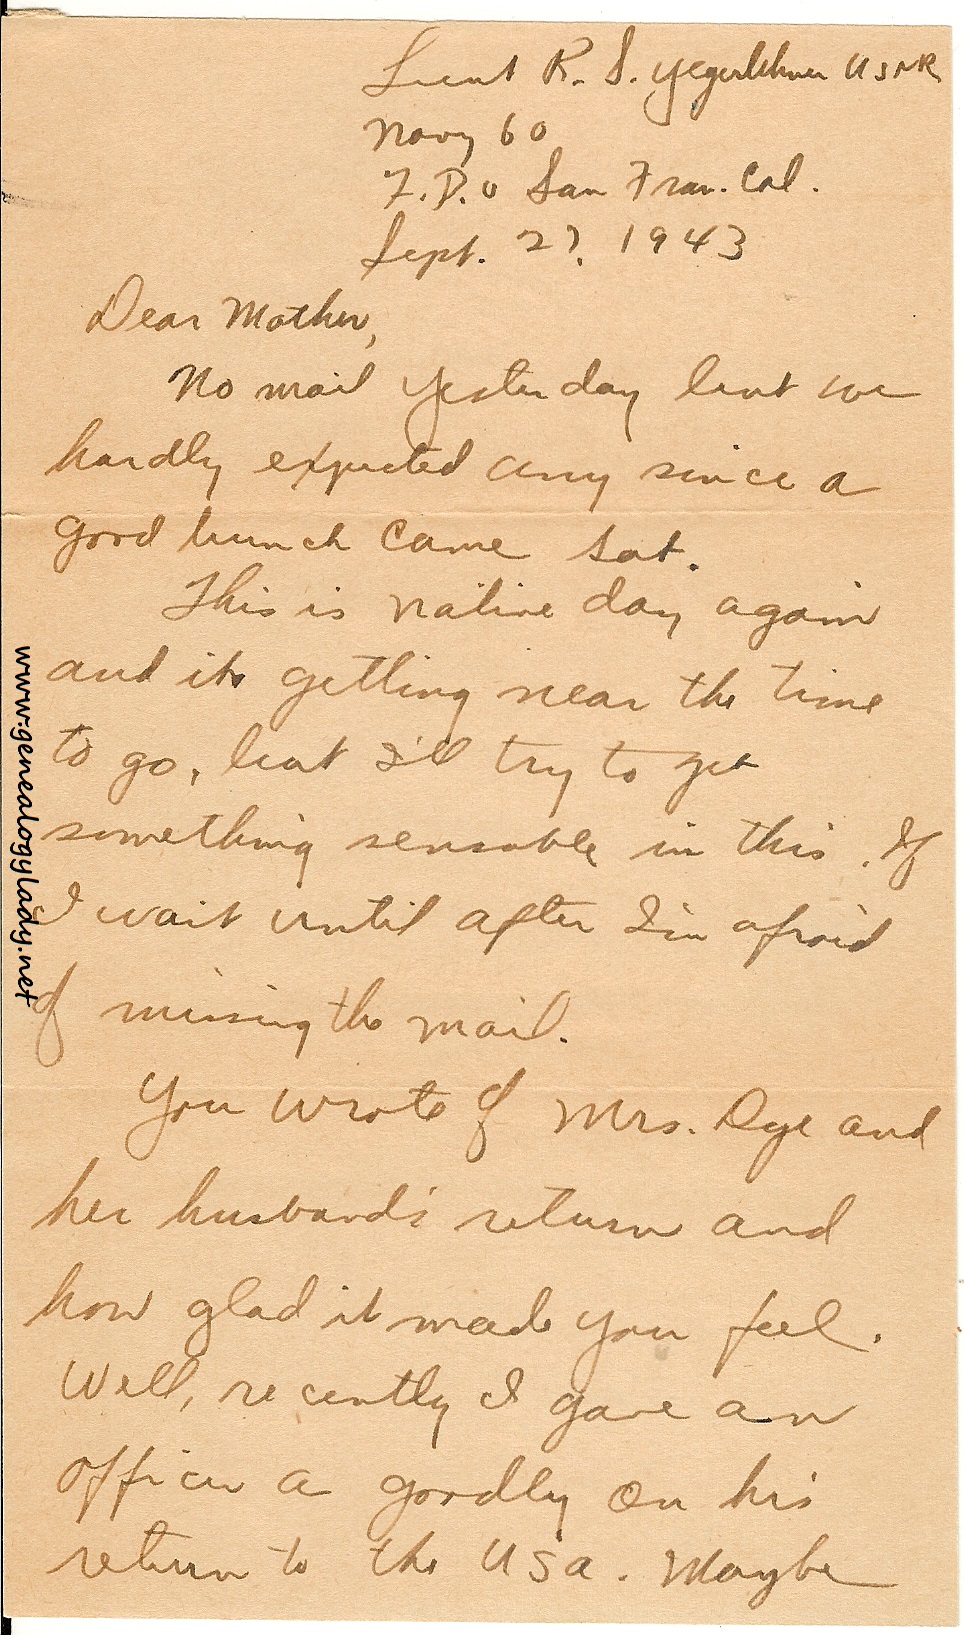 Lieut R. S. Yegerlehner USNR
Navy 60
F.P.O San Fran. Cal.
Sept. 27, 1943
Dear Mother,
No mail yesterday but we
hardly expected any since a
good bunch came Sat.
This is native day again
and its getting near the time
to go, but I'll try to get
something sensable in this. If
I wait until after I'm afraid
of missing the mail.
You wrote of Mrs. Dye and
her husband's return and
how glad it made you feel.
Well, recently I gave an
officer a goodly on his
return to the USA. Maybe
www.genealogylady.net